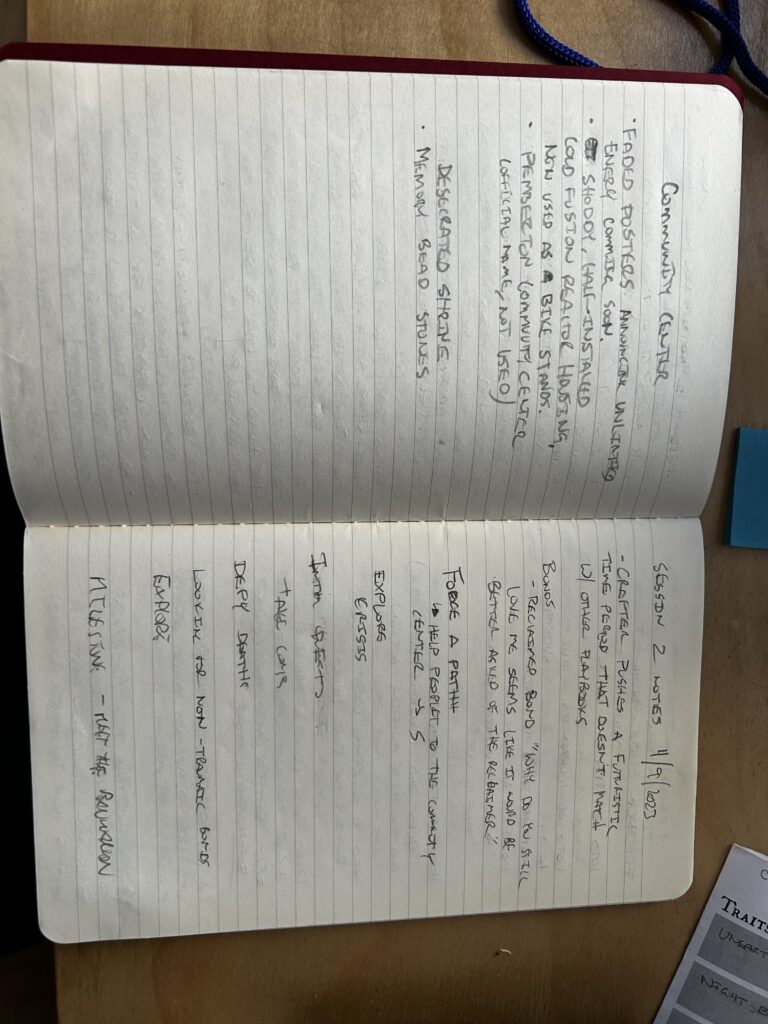 COMMUNITY CENTER
· FADED POSTERS ANNOUNCING UNLIMITED
ENERGY COMMING SOON.
· SHODDY, HALF-INSTALLED
COLD FUSION REACTOR HOUSING,
NOW USED AS A BIKE STANDS.
· PEMBERTON COMMUNITY CENTER
(OFFICIAL NAME, NOT USED)
DESECRATED SHRINE
· MEMORY BEAD STONES
SESSION 2 NOTES 4/9/2023
- CRAFTER PUSHES A FUTURISTIC
TIME PERIOD THAT DOESN'T MATCH
W/ OTHER PLAYBOOKS
BONDS
- RECLAIMED BOND "WHY DO YOU STILL
LOVE ME SEEMS LIKE IT WOULD BE
BETTER ASKED OF THE RECLAIMER"
FORGE A PATH
↳ HELP PEOPLE TO THE COMMUNITY
CENTER → 5
EXPLORE
CRISIS
QUESTS
TAKE
DEFY DEATH
LOOKING FOR NON-TRAUMATIC BONDS
EXPLORE
MILESTONE - MEET THE
TRAITS
NIGHT